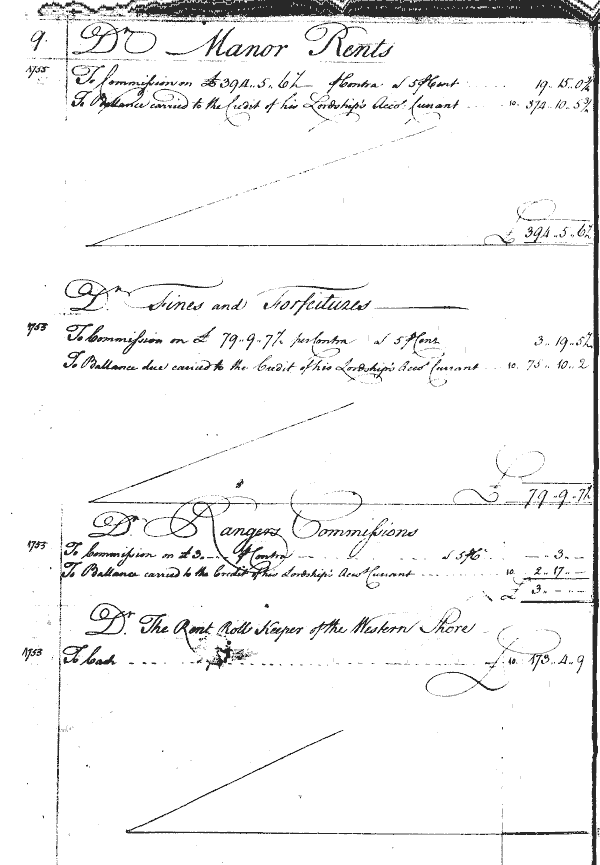 9. Dr Manor Rents
1755 To Commission on £394..5..6½ pContra a 5 pCent 19..15..0¾
To Ballance carried to the Credit of his Lordship's Accot Currant 10. 374..10..5¾
£ 394..5..6½
Dr Fines and Forfeitures
1753 To Commission on £ 79..9..7½ per Contra a 5 pCent 3..19..5½
To Ballance due carried to the Credit of his Lordship's Accot Currant 10. 75..10..2
£ 79..9..7½
Dr Rangers Commissions
1753 To Commission on £3..-..- pContra a 5 pCt — 3..—
To Ballance carried to the Credit of his Lordship's Accot Currant 10. 2..17..—
£ 3..—..—
Dr The Rent Roll Keeper of the Western Shore
1753 To Cash £ 10. 173..4..9